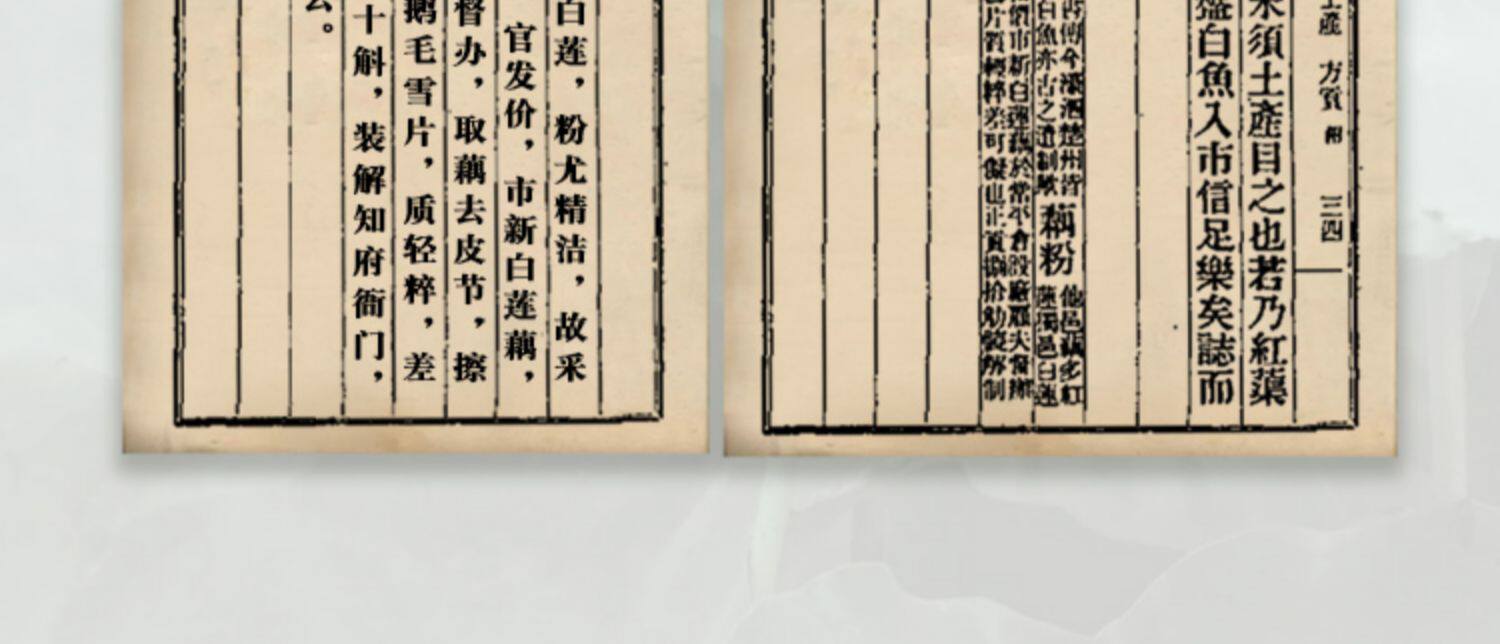 土產 方質 三四
須土產目之也若乃紅蕖
盛白魚入市信足樂矣誌而
今濠泗楚州皆
白魚亦古之遺制歟
藕粉
他邑藕多紅
蓮獨邑白蓮
市新白蓮藕於常平倉設廠雇夫督辦
片質輕粹差可儗也正貢捌拾觔裝解制
白莲，粉尤精洁，故采
官发价，市新白莲藕，
督办，取藕去皮节，擦
鹅毛雪片，质轻粹，差
十斛，装解知府衙门，